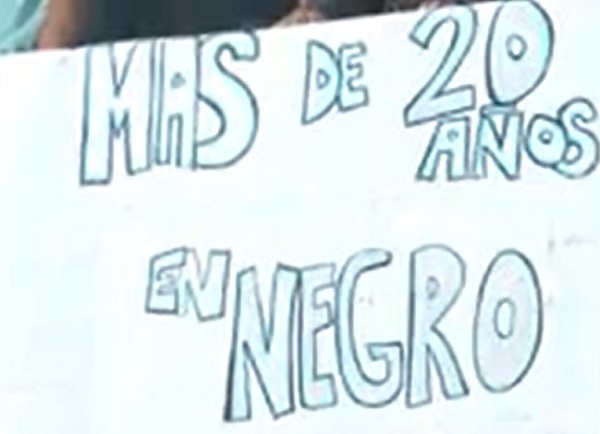 MAS DE 20
AÑOS
EN NEGRO